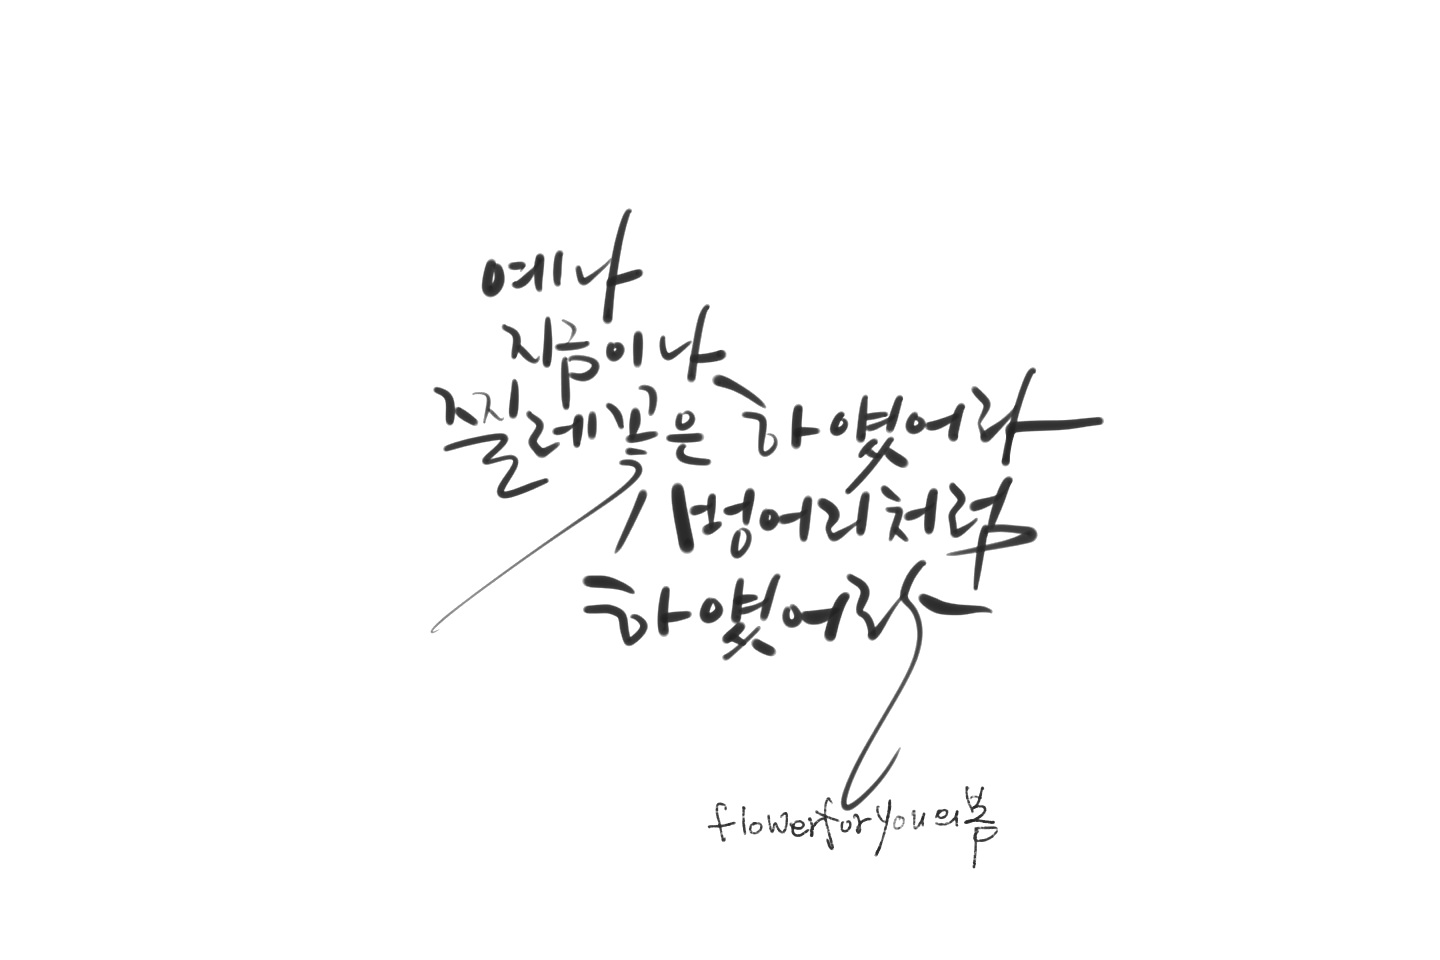 예나
지금이나
찔레꽃은 하얬어라
벙어리처럼
하얬어라
flowerforyou의 봄